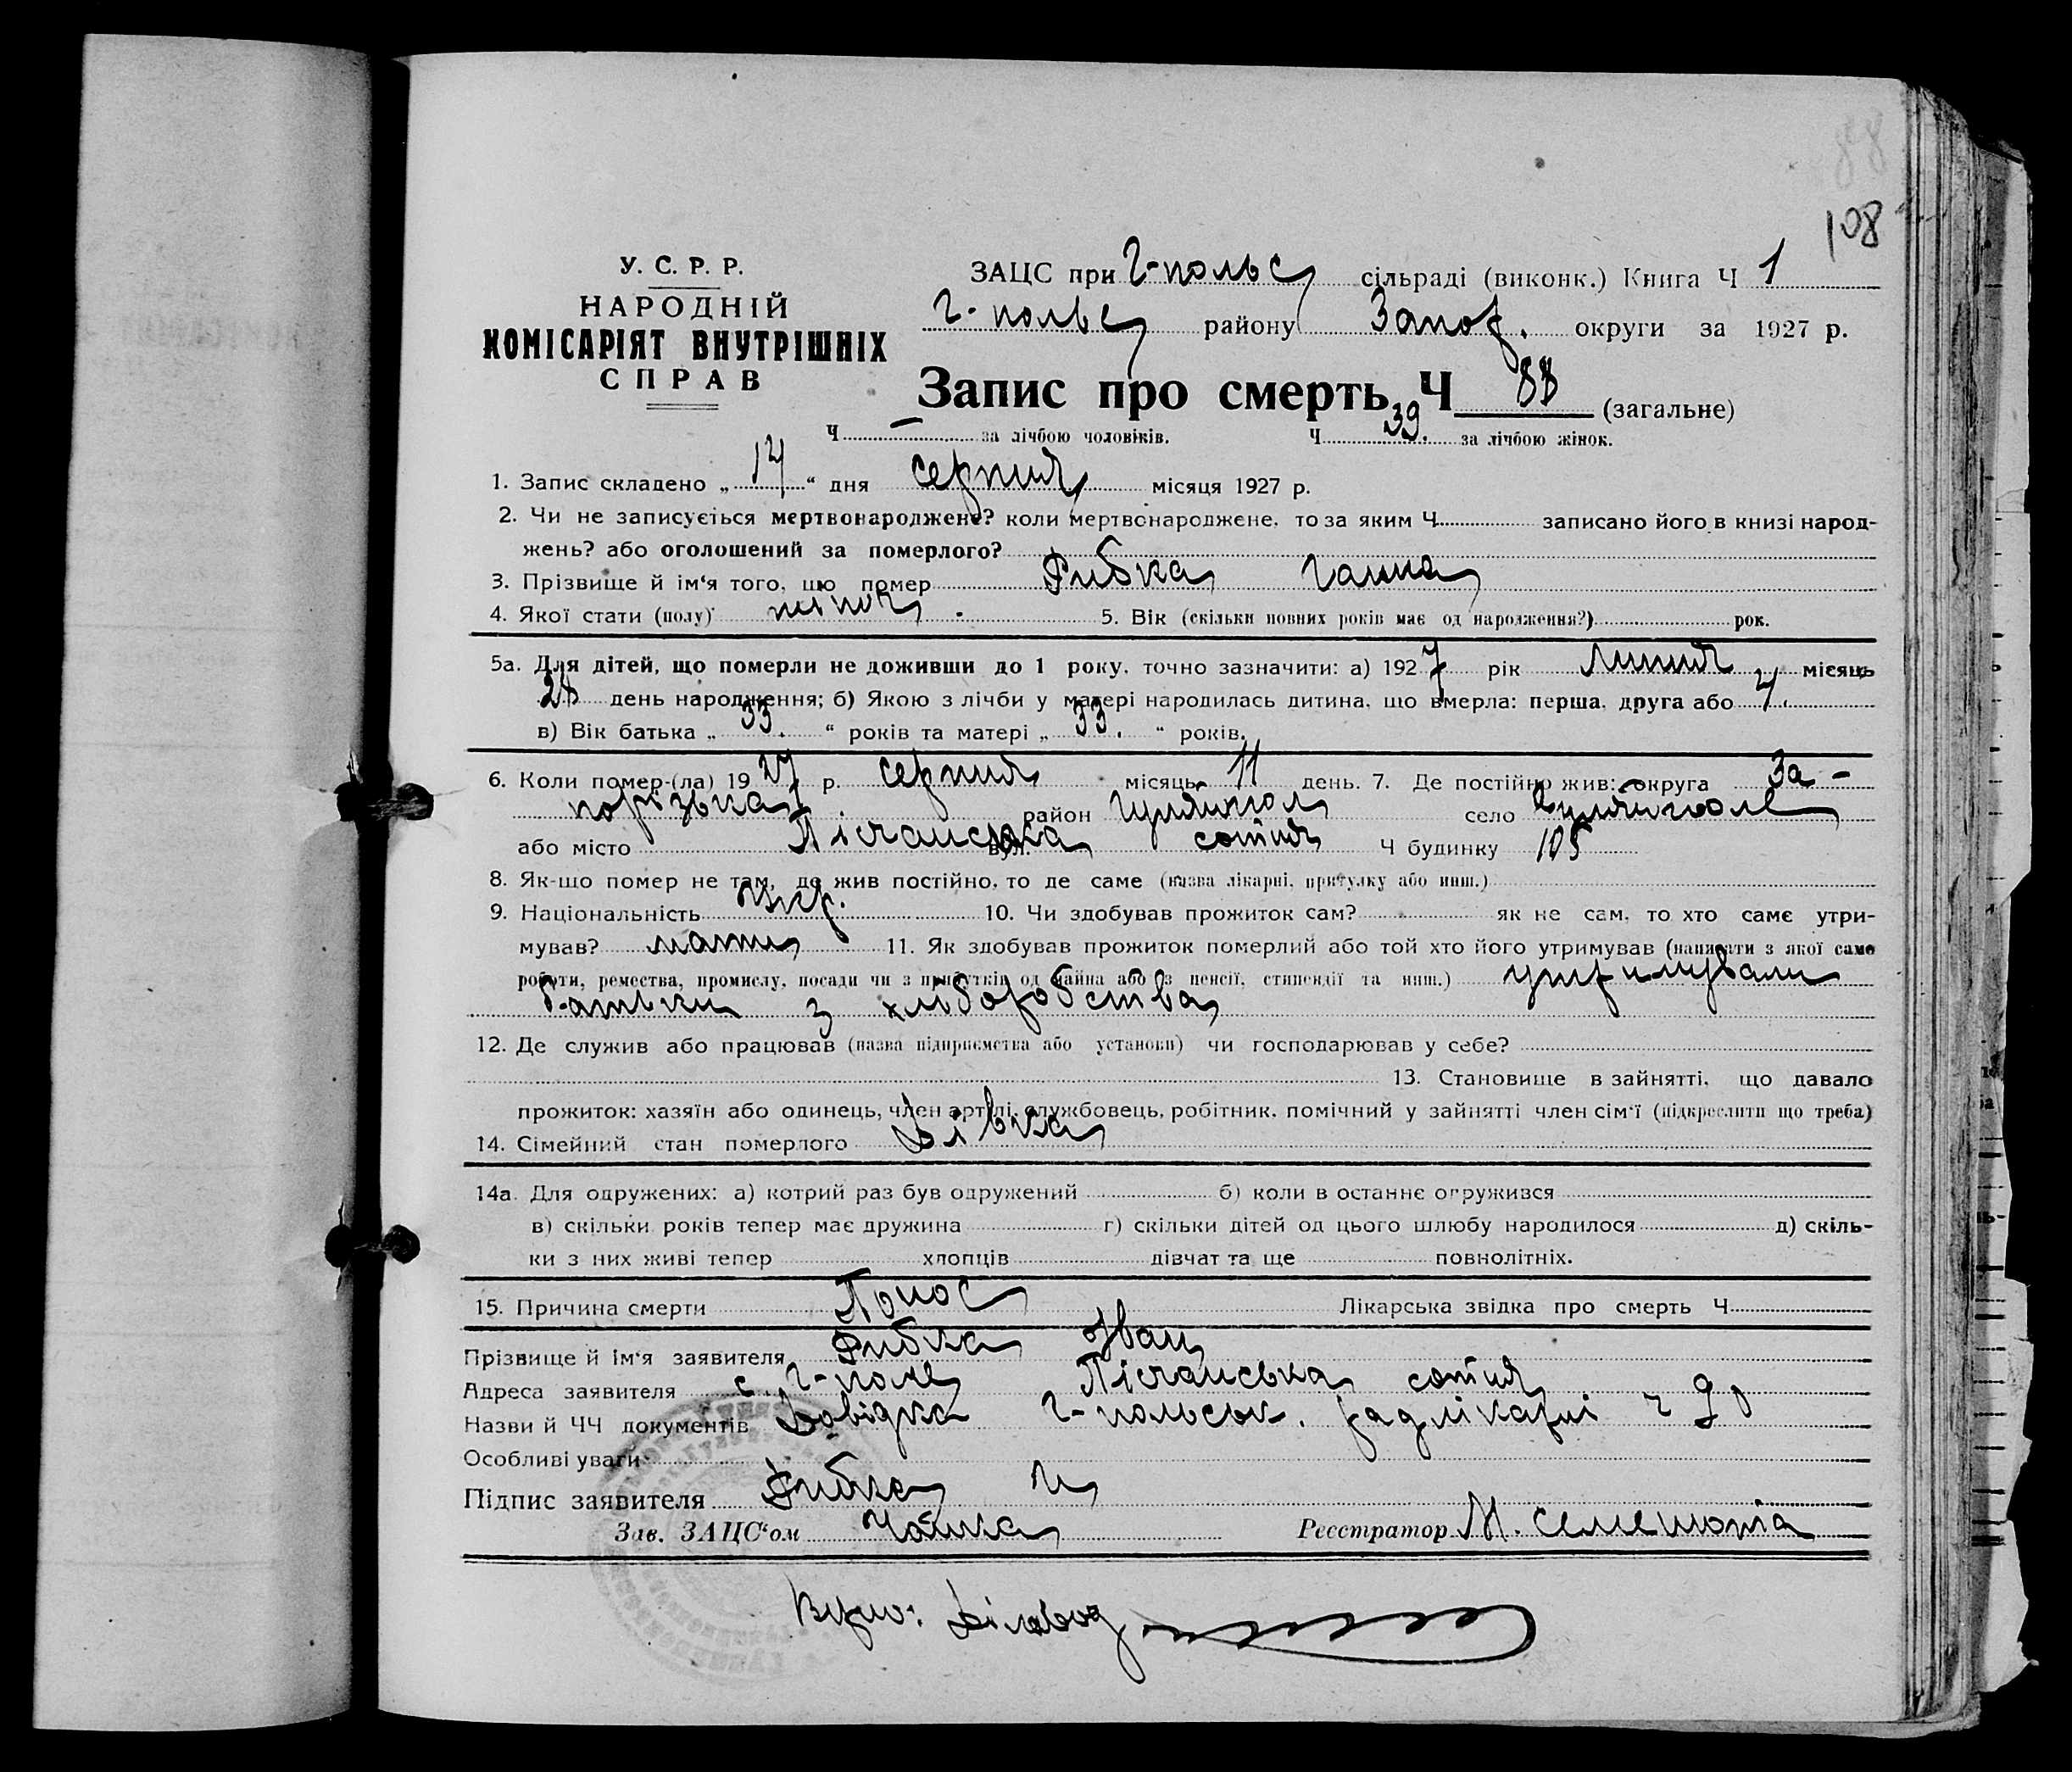 88
108
У. С. Р. Р.
НАРОДНІЙ
КОМІСАРІЯТ ВНУТРІШНІХ
СПРАВ
ЗАЦС при Г-польс сільраді (виконк.) Книга Ч 1
Г-польс району Запор. округи за 1927 р.
Запис про смерть Ч 88 (загальне)
Ч — за лічбою чоловіків. Ч 39. за лічбою жінок.
1. Запис складено „ 14 “ дня серпня місяця 1927 р.
2. Чи не записується мертвонароджене? коли мертвонароджене, то за яким Ч записано його в книзі народ-
жень? або оголошений за померлого?
3. Прізвище й ім‘я того, що помер Рибка Ганна
4. Якої стати (полу) жіноч. 5. Вік (скільки повних років має од народження?) рок.
5а. Для дітей, що померли не доживши до 1 року, точно зазначити: а) 1927 рік Липня місяць
28 день народження; б) Якою з лічби у матері народилась дитина, що вмерла: перша, друга або 4.
в) Вік батька „ 33. “ років та матері „ 33. “ років.
6. Коли помер-(ла) 1927 р. серпня місяць 11 день. 7. Де постійно жив: округа За-
порізька район Гуляйпол село Гуляйполе
або місто Пісчанська вул. сотня Ч будинку 105
8. Як-що помер не там, де жив постійно, то де саме (назва лікарні, притулку або инш.)
9. Національність Укр. 10. Чи здобував прожиток сам? як не сам, то хто саме утри-
мував? мати 11. Як здобував прожиток померлий або той хто його утримував (написати з якої саме
роботи, ремества, промислу, посади чи з прибутків од майна або з пенсії, стипендії та инш.) утримували
батьки з хліборобства
12. Де служив або працював (назва підприємства або установи) чи господарював у себе?
13. Становище в зайнятті, що давало
прожиток: хазяїн або одинець, член артілі, службовець, робітник, помічний у зайнятті член сім‘ї (підкреслити що треба)
14. Сімейний стан померлого Дівка
14а. Для одружених: а) котрий раз був одружений б) коли в останнє одружився
в) скільки років тепер має дружина г) скільки дітей од цього шлюбу народилося д) скіль-
ки з них живі тепер хлопців дівчат та ще повнолітніх.
15. Причина смерти Понос Лікарська звідка про смерть Ч
Прізвище й ім‘я заявителя Рибка Іван
Адреса заявителя с. Г-поле Пісчанська сотня
Назви й ЧЧ документів Довідка Г-польськ. радлікарні ч 90
Особливі уваги
Підпис заявителя Рибка И
Зав. ЗАЦС‘ом Чайка Реєстратор М. Семешопа